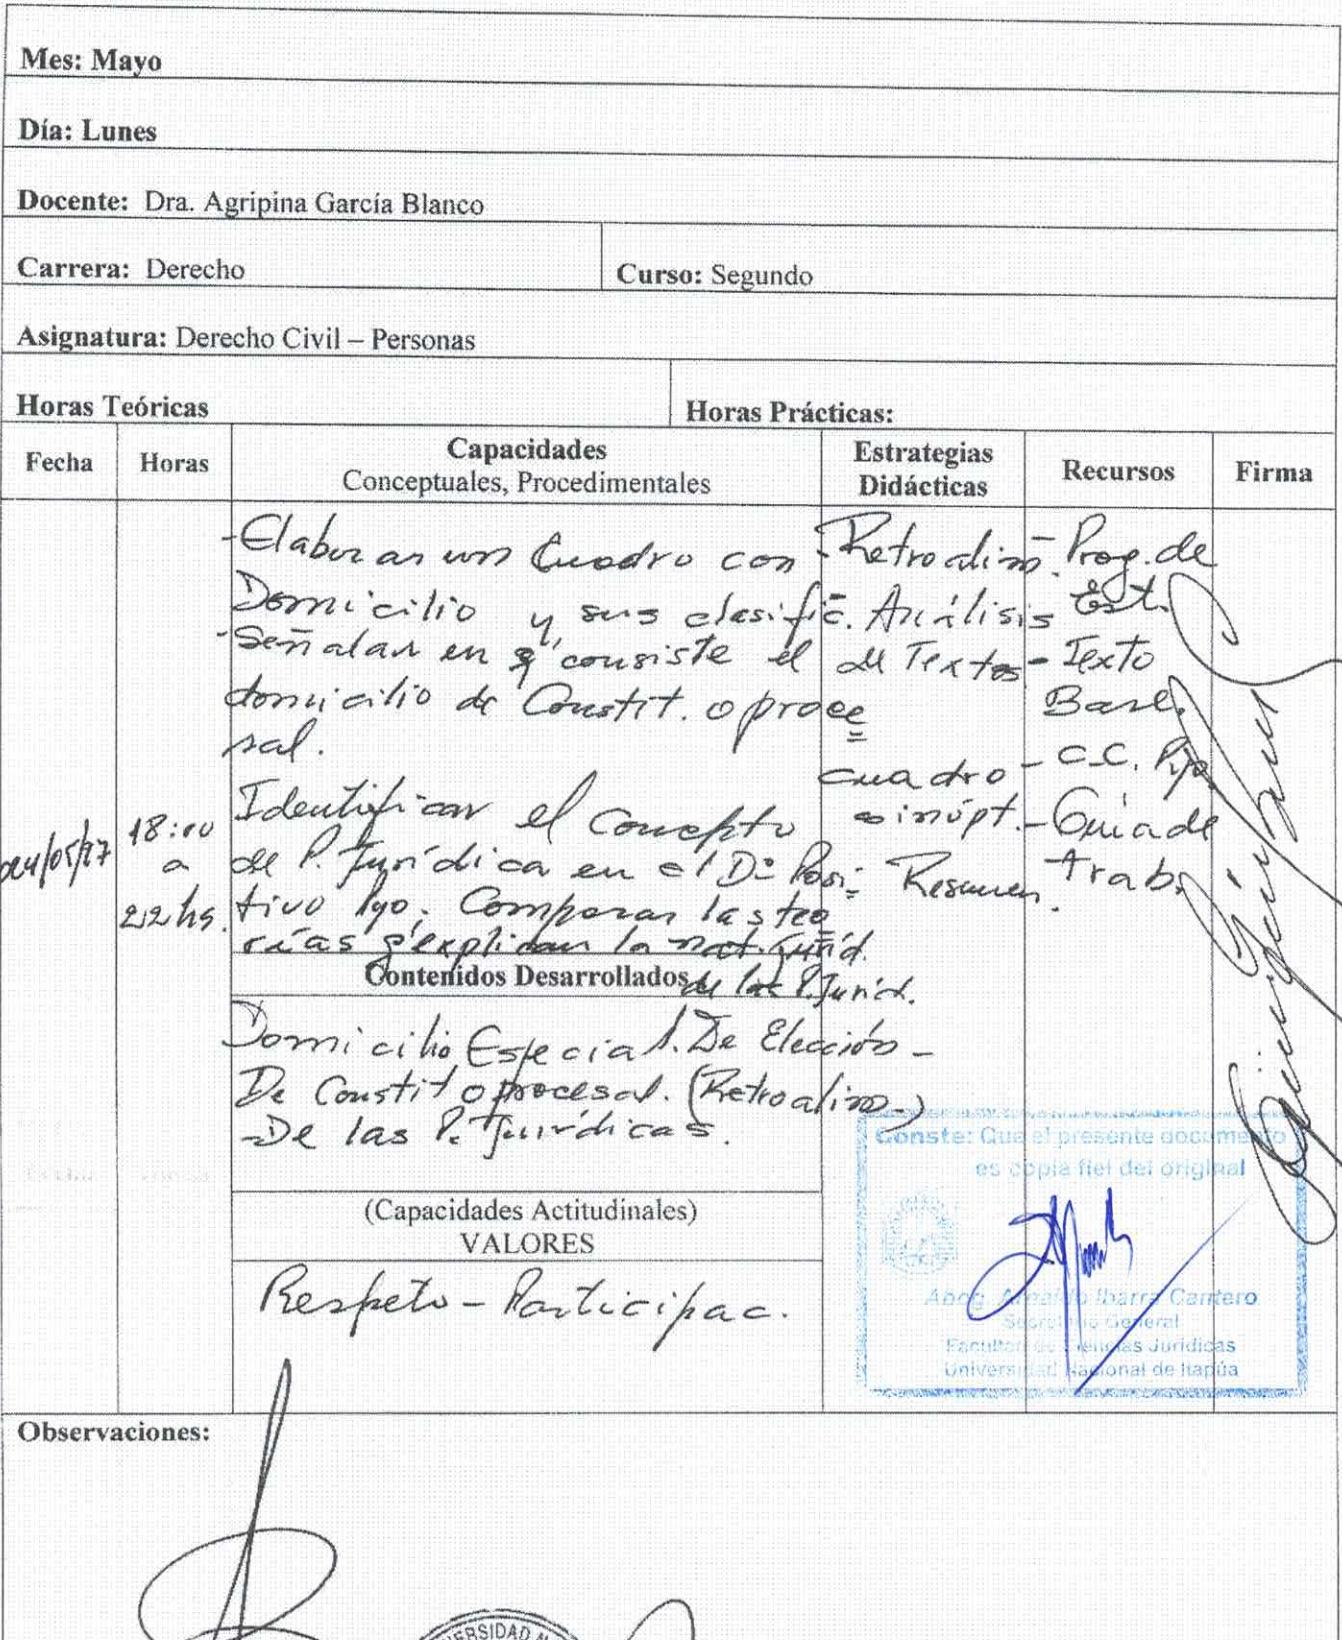 Mes: Mayo
Día: Lunes
Docente: Dra. Agripina García Blanco
Carrera: Derecho
Curso: Segundo
Asignatura: Derecho Civil – Personas
Horas Teóricas
Horas Prácticas:
Fecha
Horas
Capacidades
Conceptuales, Procedimentales
Estrategias
Didácticas
Recursos
Firma
18:00
a
22 hs.
-Elaborar un Cuadro con
Domicilio y sus clasific.
-Señalar en q' consiste el
domicilio de Constit. o proce
sal.
Identificar el Concepto
de P. Jurídica en el D° Posi-
tivo Pyo. Comparar las teo
rías q' explican la nat. Juríd.
de las P. Juríd.
-Retroalim.
Análisis
de Textos
cuadro
sinópt.
Resumen.
- Prog. de
Est.
- Texto
Base.
- C.C. Pyo
- Guía de
Trab.
Contenidos Desarrollados
Domicilio Especial. De Elección -
De Constit o procesal. (Retroalim-)
-De las P. Jurídicas.
(Capacidades Actitudinales)
VALORES
Respeto - Participac.
Conste: Que el presente documento
es copia fiel del original
Abog. Arnaldo Ibarra Cantero
Secretario General
Facultad de Ciencias Jurídicas
Universidad Nacional de Itapúa
Observaciones: